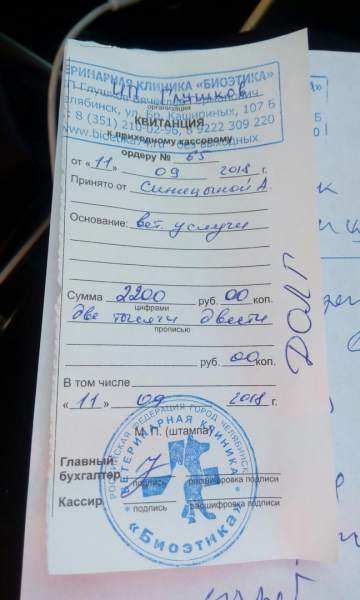 ЕРИНАРНАЯ КЛИНИКА «БИОЭТИКА»
ИП Глушков
организация
лябинск, ул. Бр. Кашириных, 107 Б
КВИТАНЦИЯ
8 (351) 210-02-96, 8 9222 309 220
к приходному кассовому
без выходных
ордеру № 65
от «11» 09 2018 г.
Принято от Синицыной А.
Основание: вет. услуги
Сумма 2200 руб. 00 коп.
цифрами
две тысячи двести
прописью
руб. 00 коп.
В том числе
«11» 09 2018 г.
М.П. (штампа)
Главный
бухгалтер
подпись расшифровка подписи
Кассир
подпись расшифровка подписи
РОССИЙСКАЯ ФЕДЕРАЦИЯ ГОРОД ЧЕЛЯБИНСК
ВЕТЕРИНАРНАЯ КЛИНИКА
«Биоэтика»
ДОЛГ